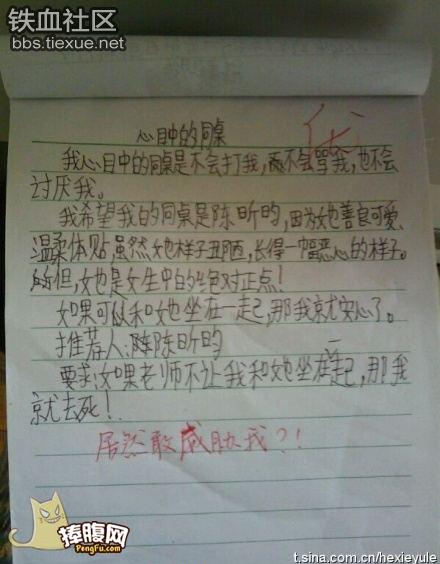 铁血社区
bbs.tiexue.net
心目中的同桌
优
我心目中的同桌是不会打我,不会骂我,也不会
讨厌我。
我希望我的同桌是陈昕昀,因为她善良可爱
温柔体贴,虽然她样子丑陋,长得一幅恶心的样子。
但,她也是女生中的绝对正点!
如果可以和她坐在一起,那我就安心了。
推荐人:陈昕昀
要求:如果老师不让我和她坐在一起,那我
就去死!
居然敢威胁我?!
捧腹网
PengFu.com
t.sina.com.cn/hexieyule